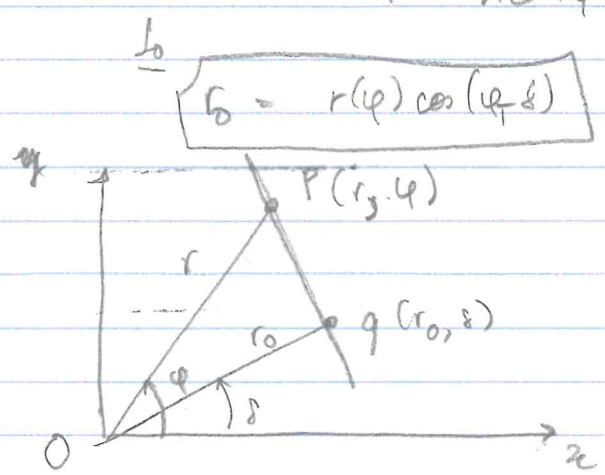 So
r₀ = r(φ) cos (φ - δ)
y
P (r, φ)
r
q (r₀, δ)
r₀
φ
δ
O
x